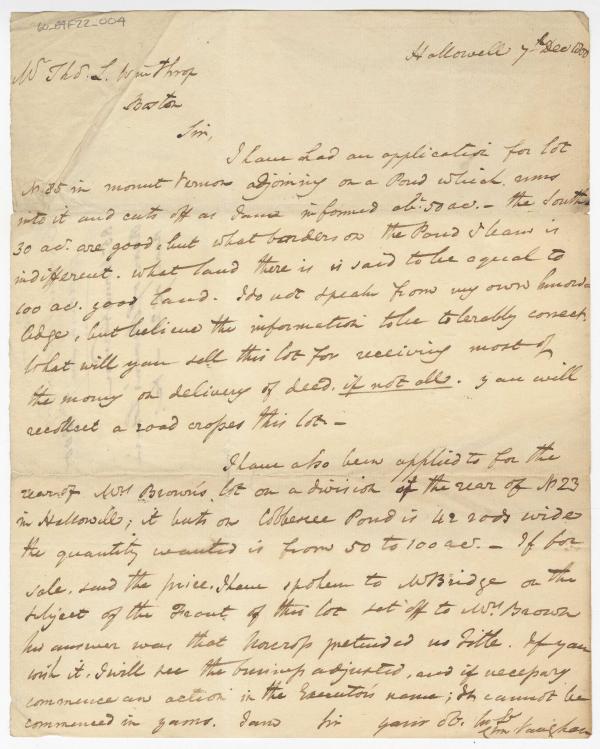 60_G9F22_004
Hallowell 7th Dec 1800
Mr Thos. L. Winthrop
Boston
Sir,
I have had an application for lot
N 85 in mount Vernon adjoining on a Pond which runs
into it and cuts off as I am informed abt. 50 ac. - the South
30 ac. are good, but what borders on the Pond I learn is
indifferent. what land there is is said to be equal to
100 ac. good land. I do not speak from my own knowl-
ledge, but believe the information to be tolerably correct.
What will you sell this lot for receiving most of
the money on delivery of deed, if not all. you will
recollect a road crosses this lot. -
I have also been applied to for the
rear of Mrs Brown's lot on a division of the rear of N 23
in Hallowell; it buts on Cobbesee Pond is 42 rods wide
the quantity wanted is from 50 to 100 ac. - If for
sale, said the price. I have spoken to Mr Bridge on the
subject of the Front of this lot set off to Mrs Brown
his answer was that Norcross pretended no Title. If you
wish it, I will see the business adjusted, and if necessary
commence an action in the Executors name; It cannot be
commenced in yours. I am Sir yours Ob.
Wm Vaughan